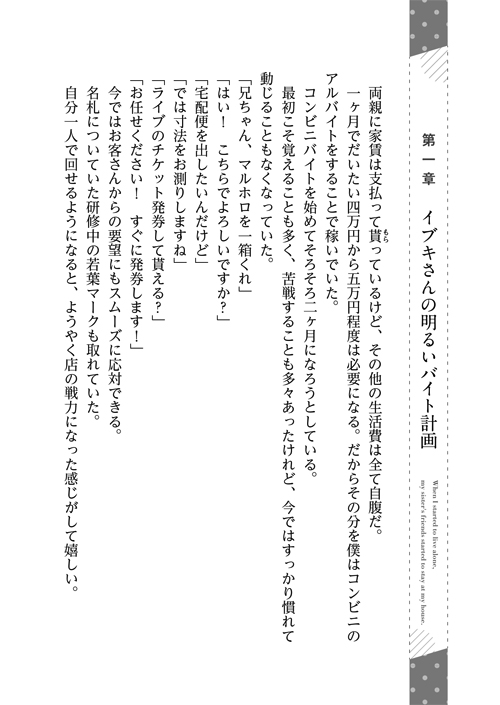 第一章　イブキさんの明るいバイト計画
When I started to live alone,
my sister's friends started to stay at my house.
両親に家賃は支払って貰っているけど、その他の生活費は全て自腹だ。
一ヶ月でだいたい四万円から五万円程度は必要になる。だからその分を僕はコンビニの
アルバイトをすることで稼いでいた。
コンビニバイトを始めてそろそろ二ヶ月になろうとしている。
最初こそ覚えることも多く、苦戦することも多々あったけれど、今ではすっかり慣れて
動じることもなくなっていた。
「兄ちゃん、マルホロを一箱くれ」
「はい！　こちらでよろしいですか？」
「宅配便を出したいんだけど」
「では寸法をお測りしますね」
「ライブのチケット発券して貰える？」
「お任せください！　すぐに発券します！」
今ではお客さんからの要望にもスムーズに応対できる。
名札についていた研修中の若葉マークも取れていた。
自分一人で回せるようになると、ようやく店の戦力になった感じがして嬉しい。